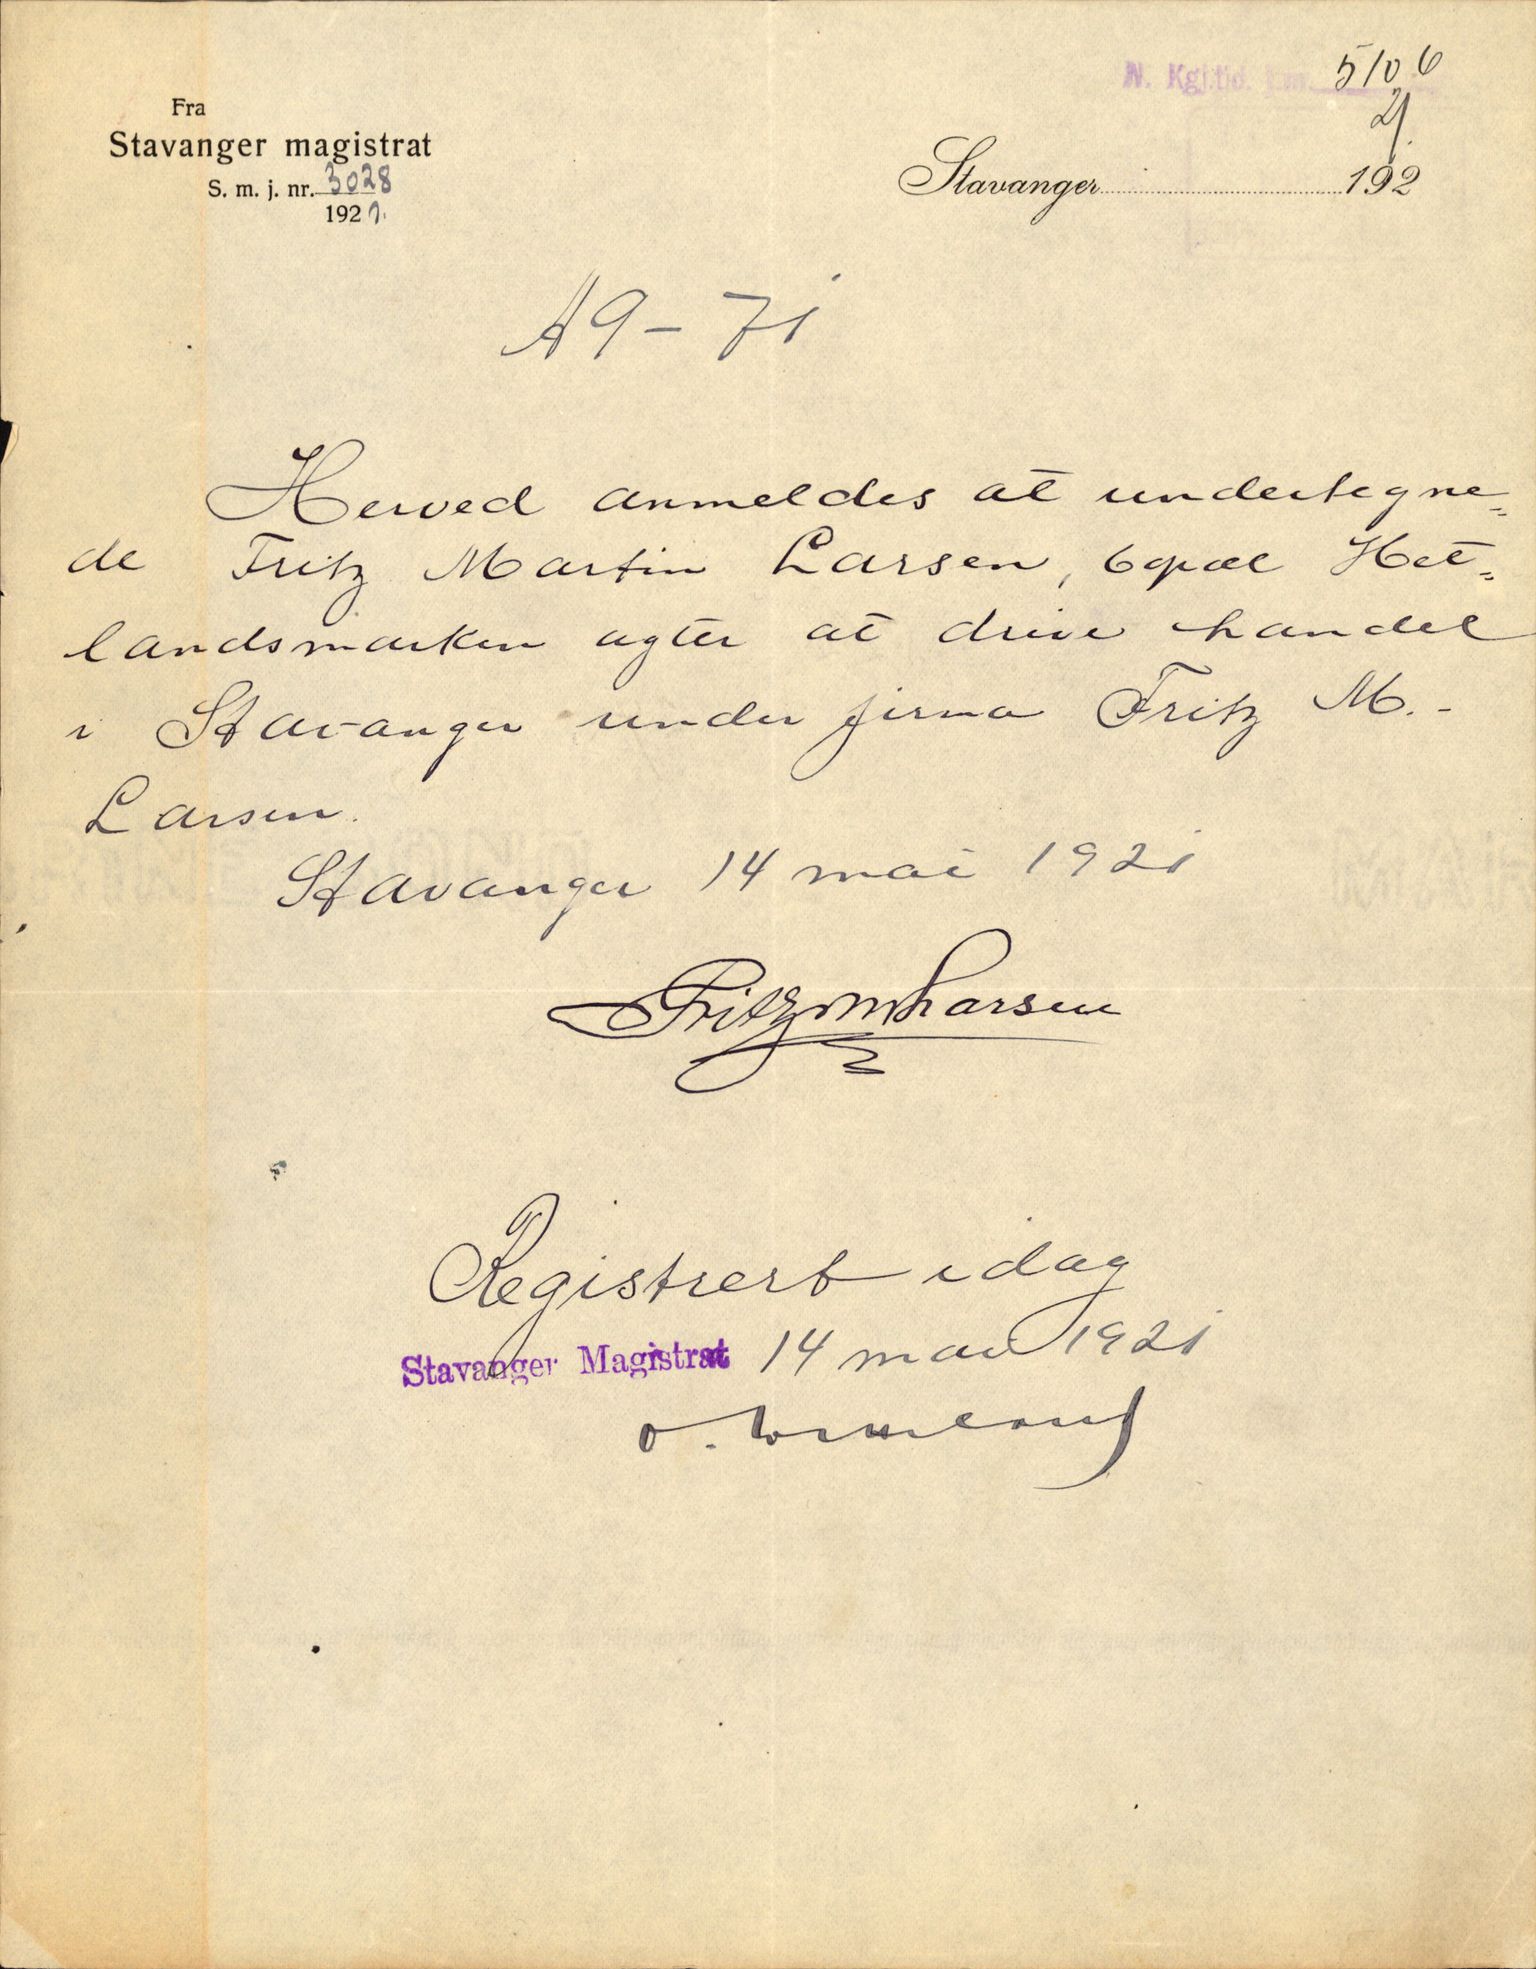 Fra
Stavanger magistrat
S. m. j. nr. 3028
1921.
N. Kgj.tid. j.nr. 5106
21.
Stavanger 192
A9-71
Herved anmeldes at undertegne=
de Fritz Martin Larsen, bopæl Het=
landsmarken agter at drive handel
i Stavanger under firma Fritz M.-
Larsen.
Stavanger 14 mai 1921
Fritz M Larsen
Registrert idag
Stavanger Magistrat 14 mai 1921
O.